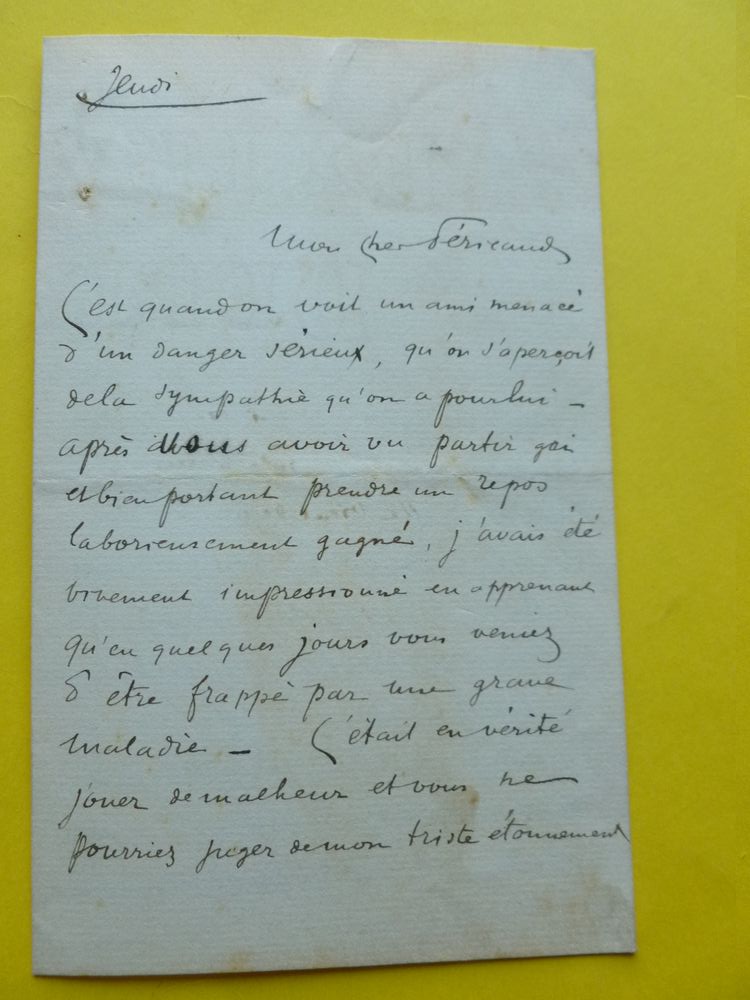 Jeudi
Mon cher Péricaud
C'est quand on voit un ami menacé
d'un danger sérieux, qu'on s'aperçoit
de la sympathie qu'on a pour lui –
après vous avoir vu partir gai
et bien portant prendre un repos
laborieusement gagné, j'avais été
vivement impressionné en apprenant
qu'en quelques jours vous veniez
d'être frappé par une grave
maladie – C'était en vérité
jouer de malheur et vous ne
pourriez juger de mon triste étonnement